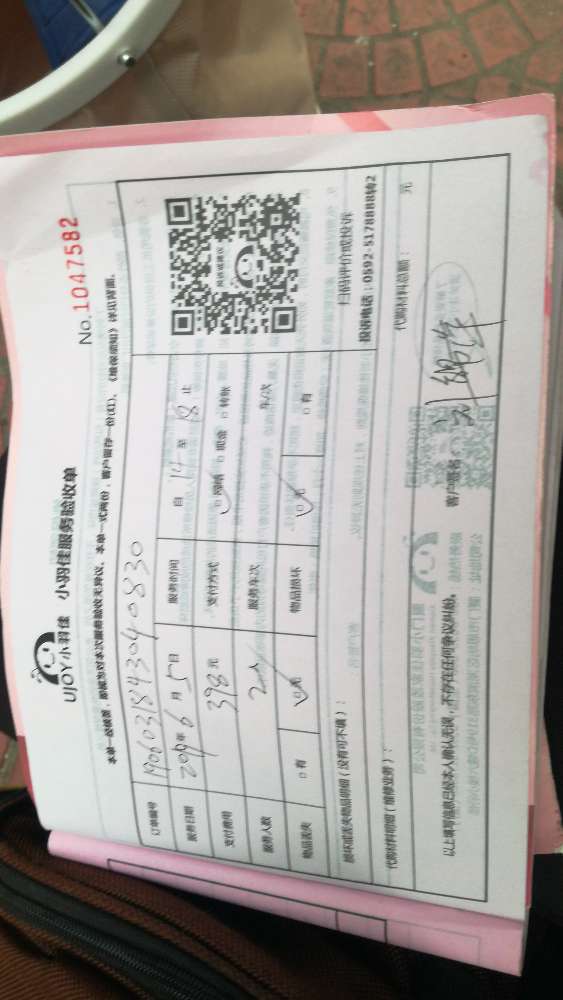 UJOY小羽佳 小羽佳服务验收单
No.1047582
本单一经核签，即视为对本次服务验收无异议。本单一式两份，客户留存一份(红)。《维保须知》详见背面。
订单编号 190603184304 0830
服务日期 2019年6月5日 服务时间 自 14 至 18 止
支付费用 398元 支付方式 ☑网络 □现金 □转账
服务人数 2人 服务车次 车/次
物品丢失 □有 ☑无 物品损坏 ☑无 □有
扫码评价或投诉
投诉电话：0592-5178888转2
损坏或丢失物品明细（没有可不填）：
代购材料明细（维修业务）： 代购材料总额： 元
以上填写信息已经本人确认无误，不存在任何争议纠纷。 客户签名：